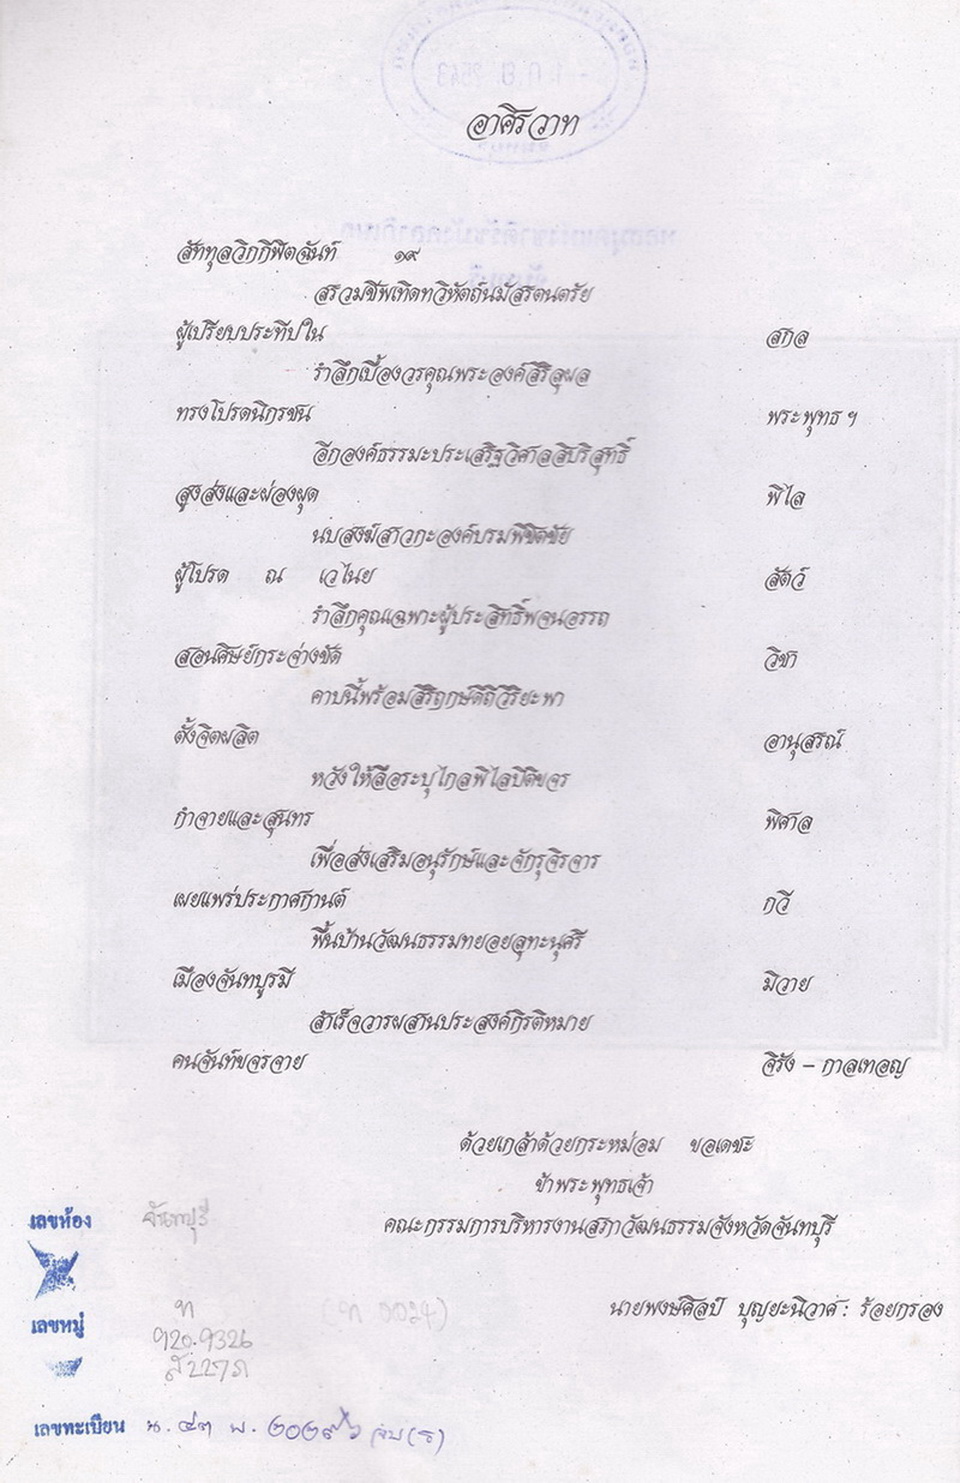 อาศิรวาท
สัททุลวิกกีฬิตฉันท์ ๑๙
สรวมชีพเทิดทวิหัตถ์นมัสรตนตรัย
ผู้เปรียบประทีปใน สกล
รำลึกเบื้องวรคุณพระองค์สิริสุผล
ทรงโปรดนิกรชน พระพุทธ ฯ
อีกองค์ธรรมะประเสริฐวิศาลสิบริสุทธิ์
สูงส่งและผ่องผุด พิไล
นบสงฆ์สาวกะองค์บรมพิชิตชัย
ผู้โปรด ณ เวไนย สัตว์
รำลึกคุณเฉพาะผู้ประสิทธิ์พจนอรรถ
สอนศิษย์กระจ่างชัด วิชา
คาบนี้พร้อมสิริฤกษ์ดิถีวิริยะพา
ตั้งจิตผลิต อานุสรณ์
หวังให้ลือระบุไกลพิไลปิติขจร
กำจายและสุนทร พิศาล
เพื่อส่งเสริมอนุรักษ์และจักรุจิรจาร
เผยแพร่ประกาศกานต์ กวี
พื้นบ้านวัฒนธรรมทยอยลุทะนุศรี
เมืองจันทบูรมี มิวาย
สำเร็จวารผสานประสงค์กิรติหมาย
คนจันท์ขจรจาย จิรัง – กาลเทอญ
ด้วยเกล้าด้วยกระหม่อม ขอเดชะ
ข้าพระพุทธเจ้า
คณะกรรมการบริหารงานสภาวัฒนธรรมจังหวัดจันทบุรี
นายพงษ์ศิลป์ บุญยะนิวาศ : ร้อยกรอง
เลขห้อง จันทบุรี
ท
เลขหมู่ ๙๒๐.๙๕๒๖
เลขทะเบียน น. ๔๓ พ.